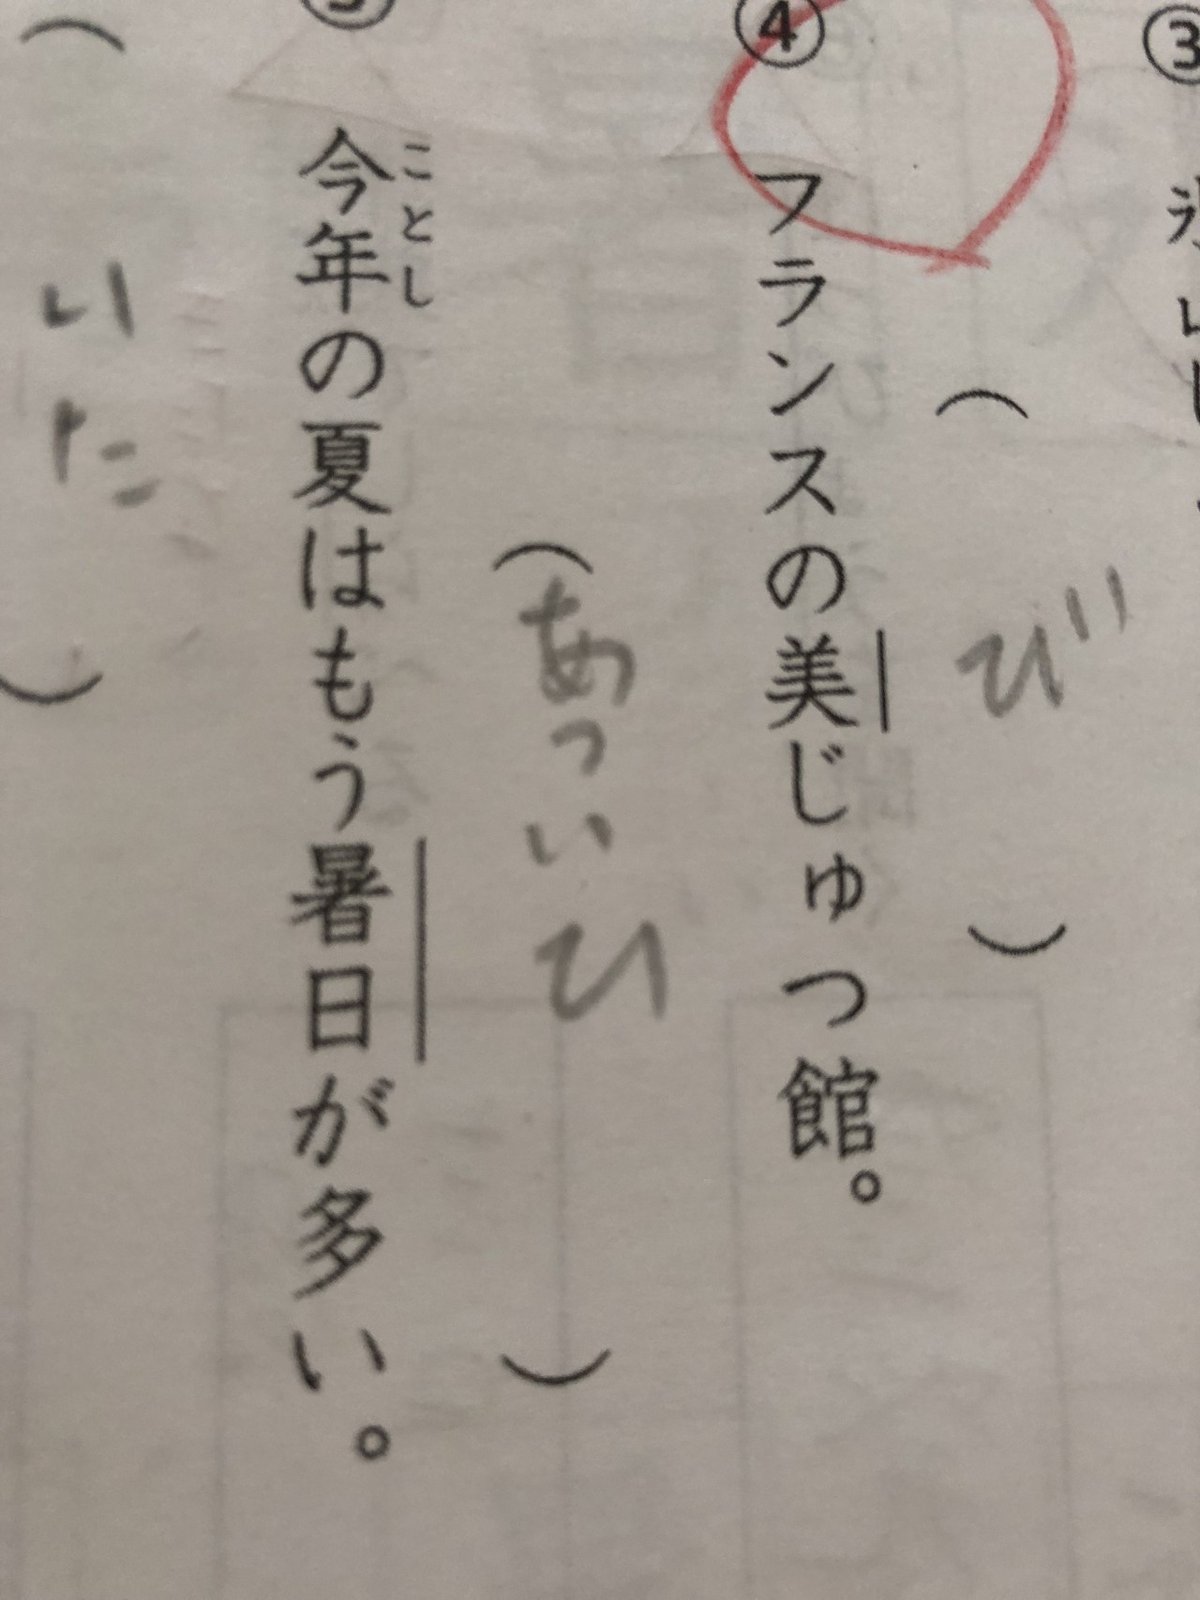 ③
④
フランスの美じゅつ館。
び
ことし
今年の夏はもう暑日が多い。
あついひ
いた